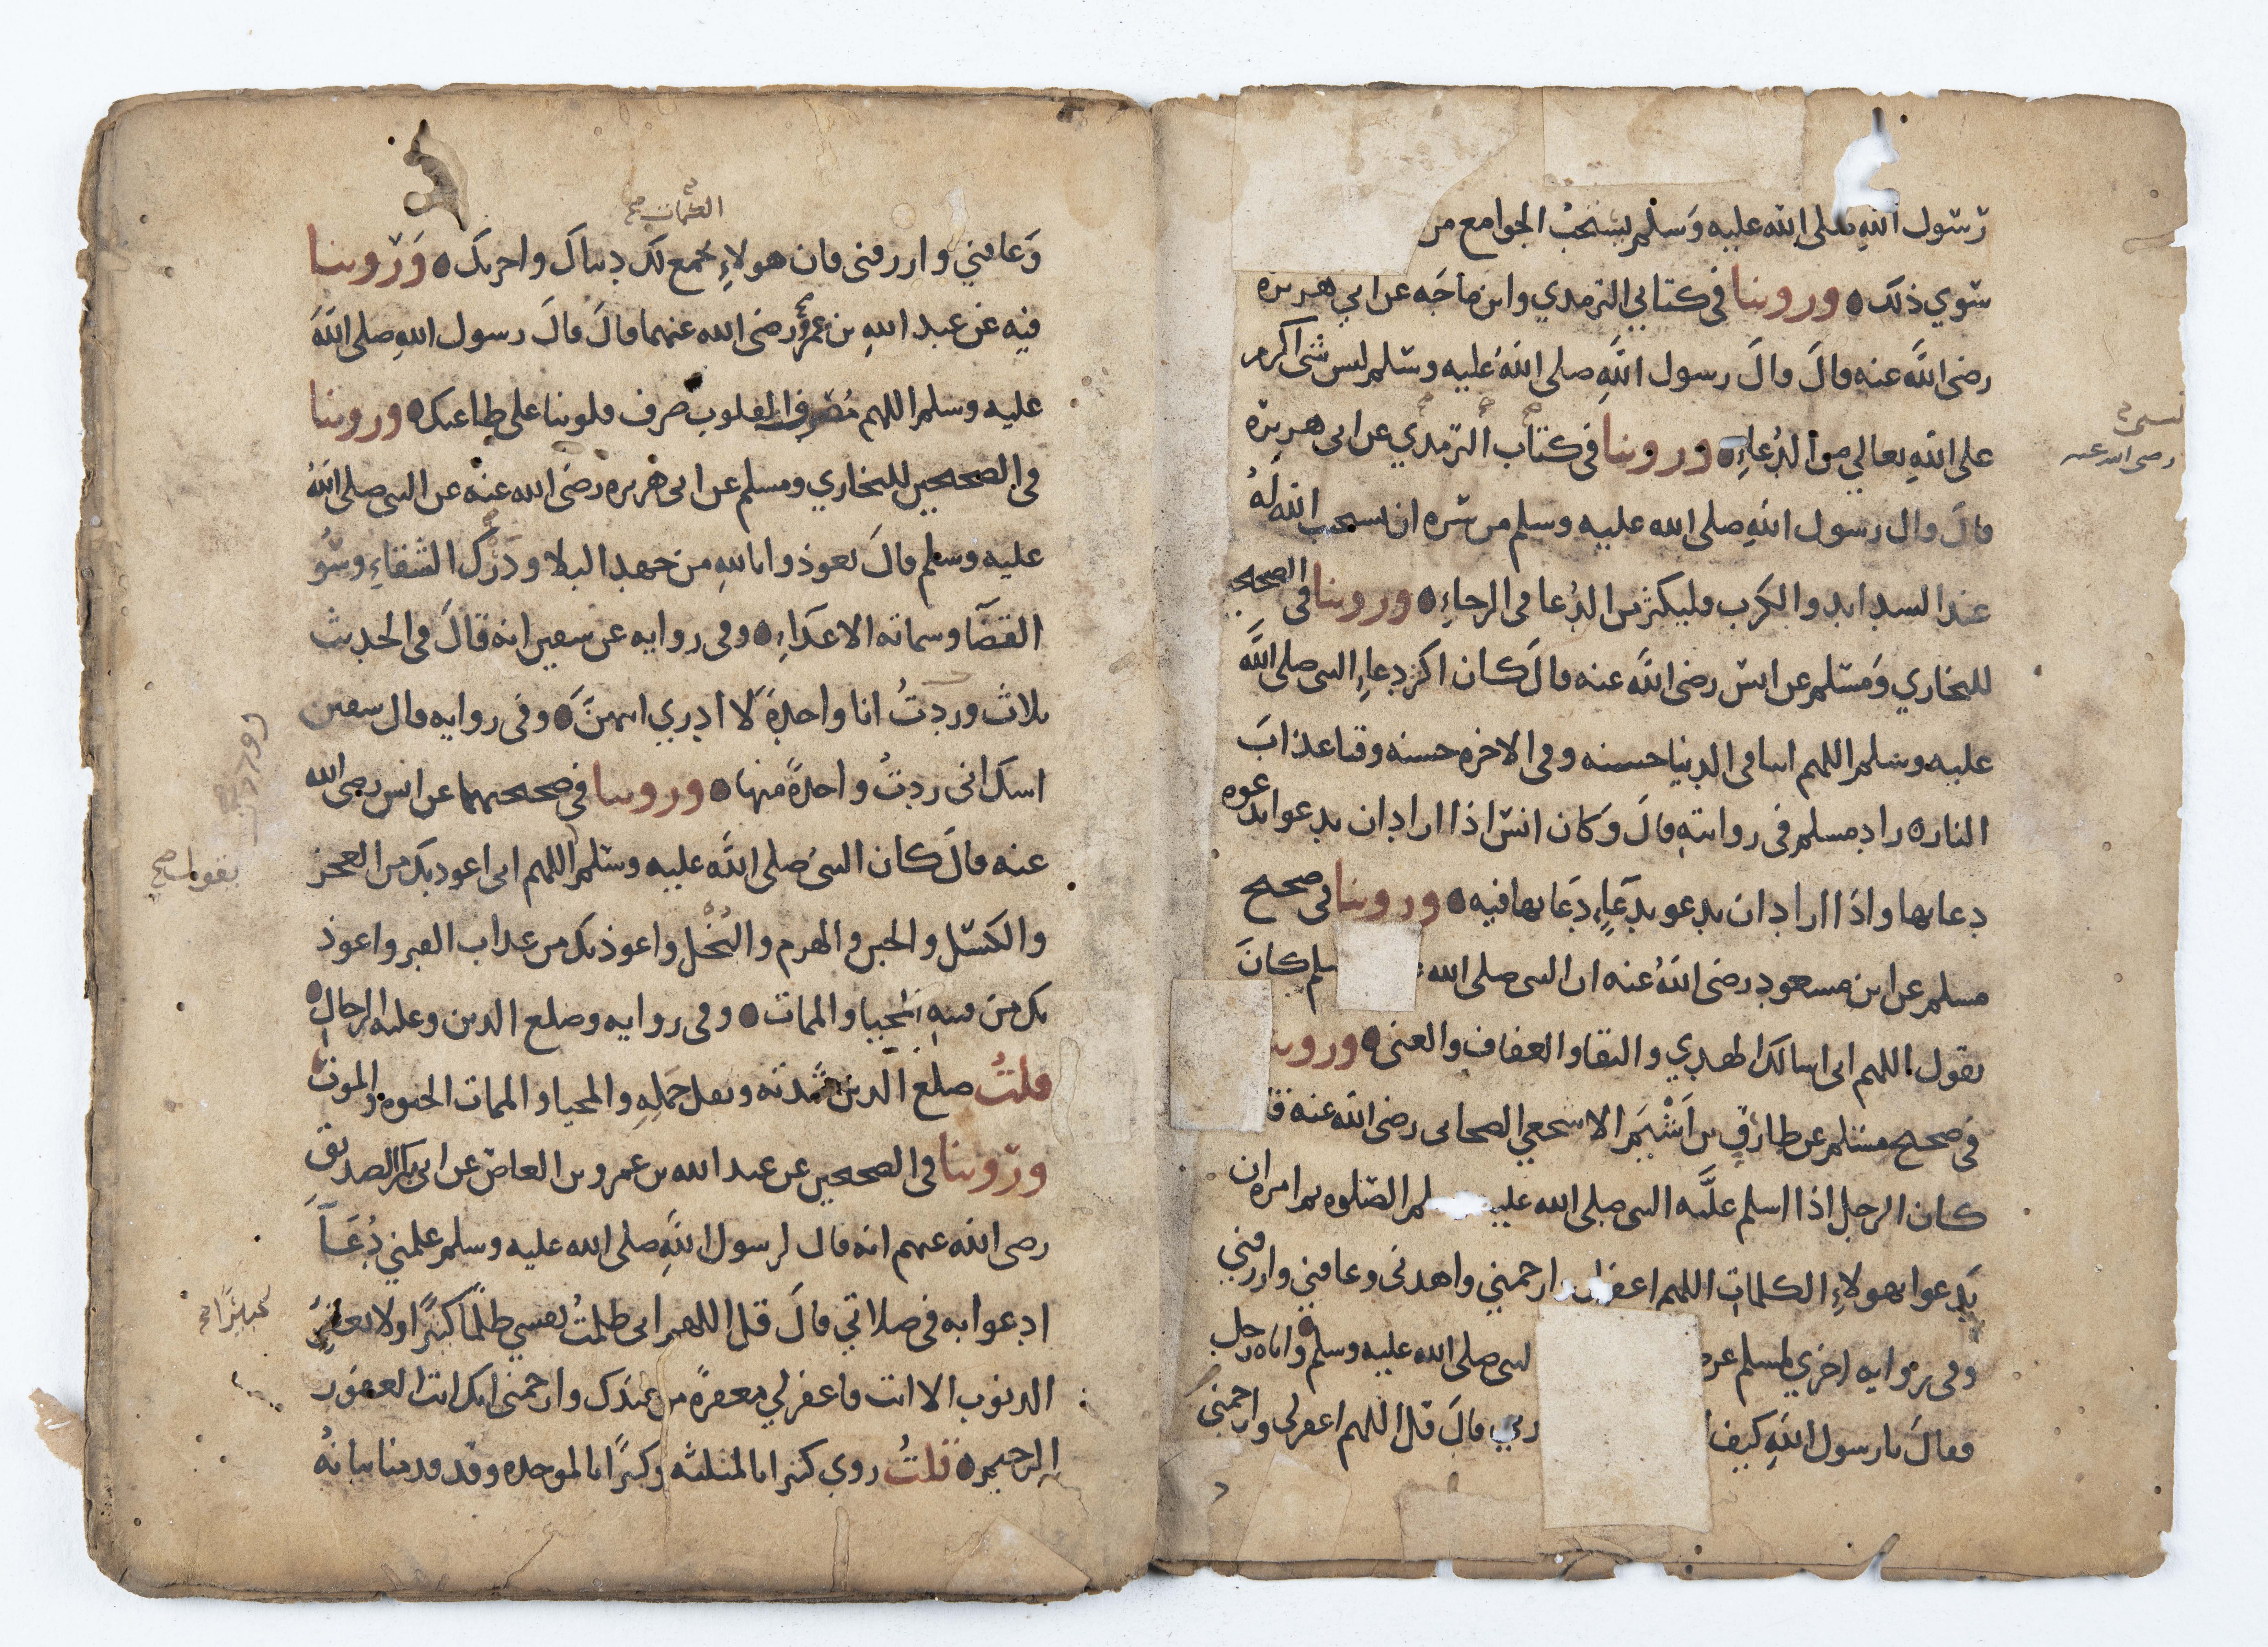 رسول الله صلى الله عليه وسلم يستحب الجوامع من
سوي ذلك وروينا في كتابي الترمدي وابن ماجه عن ابي هريره
رضى الله عنه قال قال رسول الله صلى الله عليه وسلم ليس شى اكرم
على الله تعالي من الدعاء وروينافي كتاب الترمدي عن ابى هريرة
رضى الله عنه
قال قال رسول الله صلى الله عليه وسلم من سره ان يستجيب الله له
عند الشدايد والكرب فليكثر من الدعا فى الرخاء وروينا فى الصحيح
للبخاري ومسلم عن انس رضى الله عنه قال كان اكثر دعاء النبى صلى الله
عليه وسلم اللهم اتنا فى الدنيا حسنه وفى الاخره حسنه وقنا عذاب
النار زاد مسلم فى روايته قال وكان انس اذا اراد ان يدعوا بدعوه
دعا بها واذا اراد ان يدعو بدعاء دعا بها فيه وروينا فى صحيح
مسلم عن ابن مسعود رضى الله عنه ان النبى صلى الله سلم كان
يقول اللهم انى اسالك الهدي والتقا والعفاف والغنى وروينا
فى صحيح مسلم عن طارق بن اشيم الاشجعي الصحابى رضى الله عنه
كان الرجل اذا اسلم علمه النبى صلى الله عليه الصلوه ثم امره ان
يدعوا بهولاء الكلمات اللهم اغفر لى ارحمني واهدنى وعافني وارزقني
وفى روايه اخري لمسلم عن صلى الله عليه وسلم واتاه رجل
فقال يا رسول الله كيف ربي قال قل اللهم اغفرلى وارحمني
الكلمات صح
وعافني وارزقنى فان هولاء تجمع لك دنياك واخرتك وروينا
فيه عن عبد الله بن عمرو رضى الله عنهما قال قال رسول الله صلى الله
عليه وسلم اللهم مصرف القلوب صرف قلوبنا على طاعتك وروينا
فى الصحيحين للبخاري ومسلم عن ابى هريره رضى الله عنه عن النبى صلى الله
عليه وسلم قال تعوذوا بالله من جهد البلا ودرك الشقاء وسو
القضا وشماته الاعداء وفى روايه عن سفين انه قال فى الحديث
ثلاث وزدت انا واحدة لا ادري ايتهن وفى روايه قال سفين
اشك انى زدت واحدة منها وروينا فى صحيحيهما عن انس رضى الله
عنه قال كان النبى صلى الله عليه وسلم اللهم انى اعوذ بك من العجز
يقول صح
والكسل والجبن والهرم والبخل واعوذ بك من عذاب القبر واعوذ
بك من فتنه المحيا والممات وفى روايه وضلع الدين وغلبه الرجال
قلت ضلع الدين شدته وثقل حمله والمحيا والممات الحيوه والموت
وروينا فى الصحيحين عن عبد الله بن عمرو بن العاص عن ابى بكر الصديق
رضى الله عنهم انه قال لرسول الله صلى الله عليه وسلم علمني دعا
ادعوا به فى صلاتي قال قل اللهم انى ظلمت نفسي ظلما كثيرا ولا يغفر
كبيرا
الذنوب الا انت فاغفر لي مغفرة من عندك وارحمنى انك انت الغفور
الرحيم قلت روي كثيرا بالمثلثه وكبيرا بالموحده وقد قدمنا بيانه